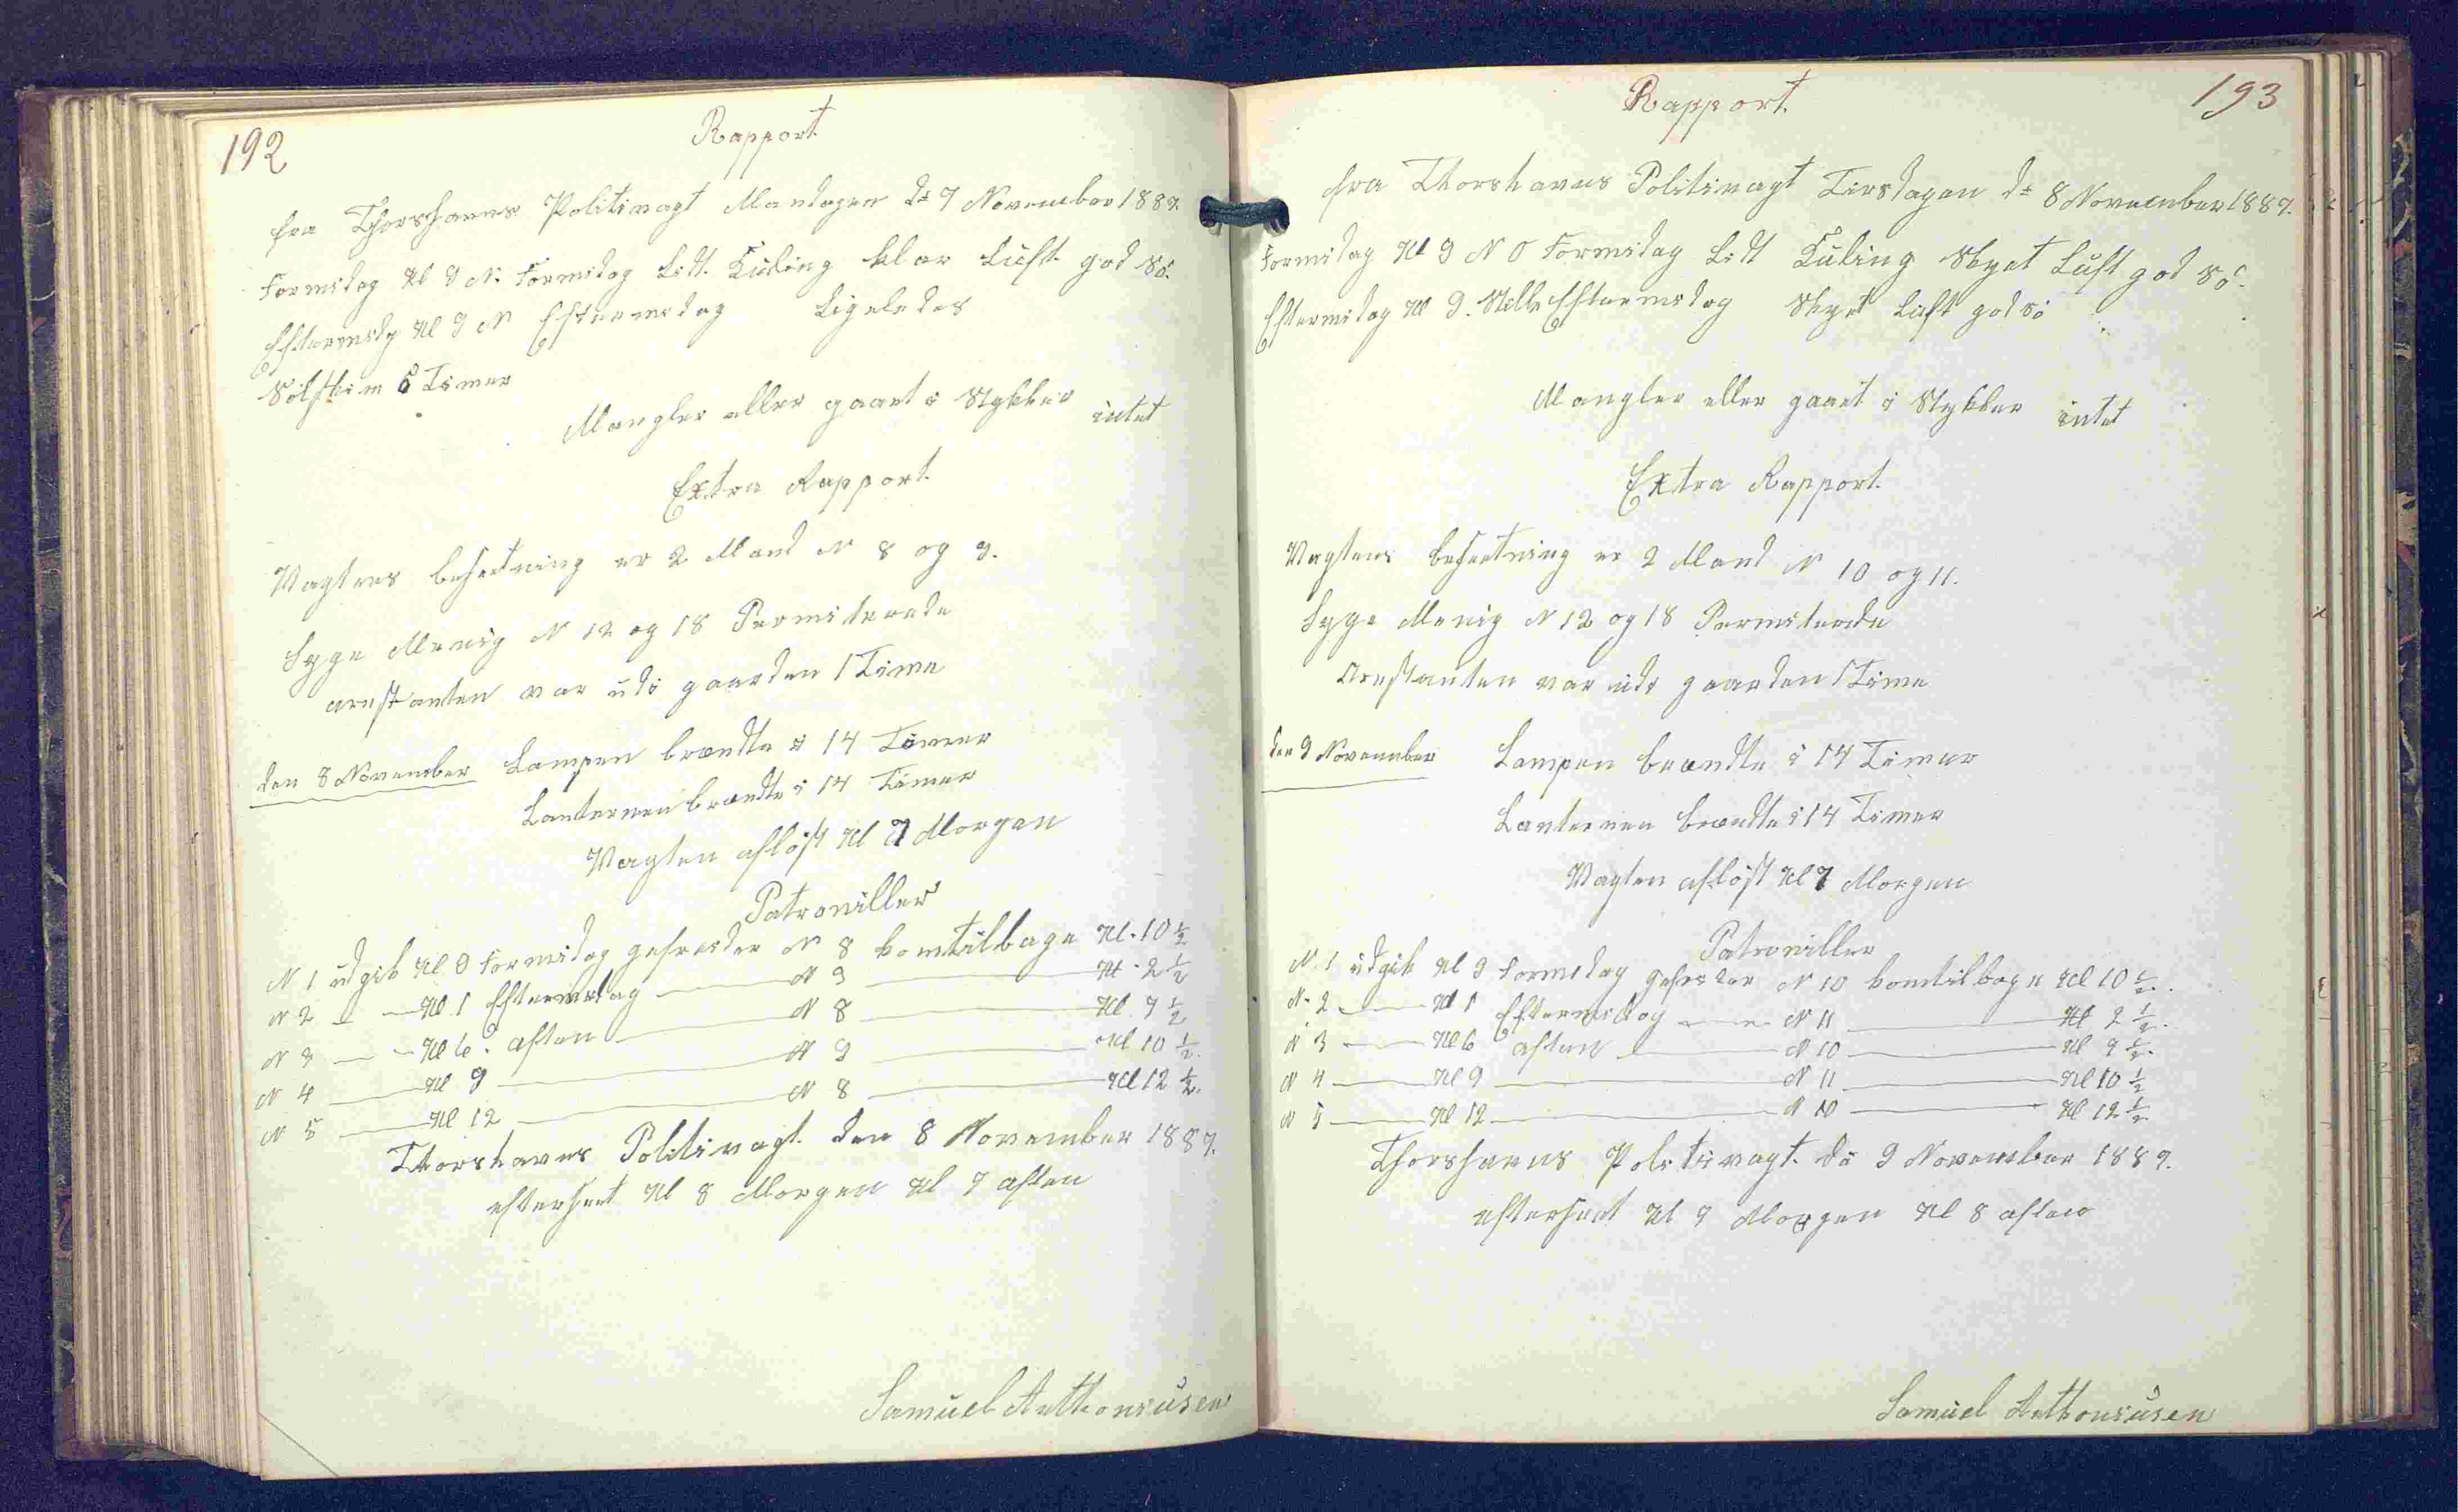 192
Rapport
fra Thorshavns Politivagt Mandagen d= 7 November 1887.
Formidag Kl 9 N. Formidag Lidt Kuling klar Luft god Sö.
Eftermidg Kl 9 N Eftermidag Ligeledes
Solskin 6 Timer
Mangler eller gaaet i Stykker intet
Extra Rapport.
Vagtens besætning er 2 Mand N 8 og 9.
Syge Menig N 12 og 18 Permiterede
arestanten var udi gaarden 1 Time
den 8 November Lampen brændte i 14 Timer
Lanternen brændte i 14 Timer
Vagten aflöst Kl 7 Morgen
Patrouiller
N 1 udgik Kl 9 Formidag gefreider N 8 kom tilbage Kl. 10 ½
N 2 — Kl 1 Eftermidag — N 9 — Kl. 2 ½
N 3 — Kl 6. aften — N 8 — Kl. 7 ½
N 4 — Kl 9 — N 9 — Kl 10 ½.
N 5 — Kl 12 — N 8 — Kl 12 ½.
Thorshavns Politivagt. den 8 November 1887.
efterseet Kl 8 Morgen Kl 7 aften
Samuel Anthoniusen
193
Rapport.
fra Thorshavns Politivagt Tirsdagen d= 8 November 1887.
Formidag Kl 9 N O Formidag Lidt Kuling Skyet Luft god Sö.
Eftermidag Kl 9. Stille Eftermidag Skyet Luft god Sö
Mangler eller gaaet i Stykker intet
Extra Rapport.
Vagtens besætning er 2 Mand N 10 og 11.
Syge Menig N 12 og 18 Permiterede
Arestanten var udi gaarden 1 Time
den 9 November Lampen brændte i 14 Timer
Lanternen brændte i 14 Timer
Vagten aflöst Kl 7 Morgen
Patrouiller
N. 1 udgik Kl 9 Formidag gefreider N 10 kom tilbage Kl 10 ½.
N. 2 — Kl 1 Eftermidag — N 11 — Kl 2 ½.
N 3 — Kl 6 aften — N 10 — Kl 7 ½.
N 4 — Kl 9 — N 11 — Kl 10 ½
N 5 — Kl 12 — N 10 — Kl 12 ½
Thorshavns Politivagt. d= 9 November 1887.
efterseet Kl 7 Morgen Kl 8 aften
Samuel Anthoniusen